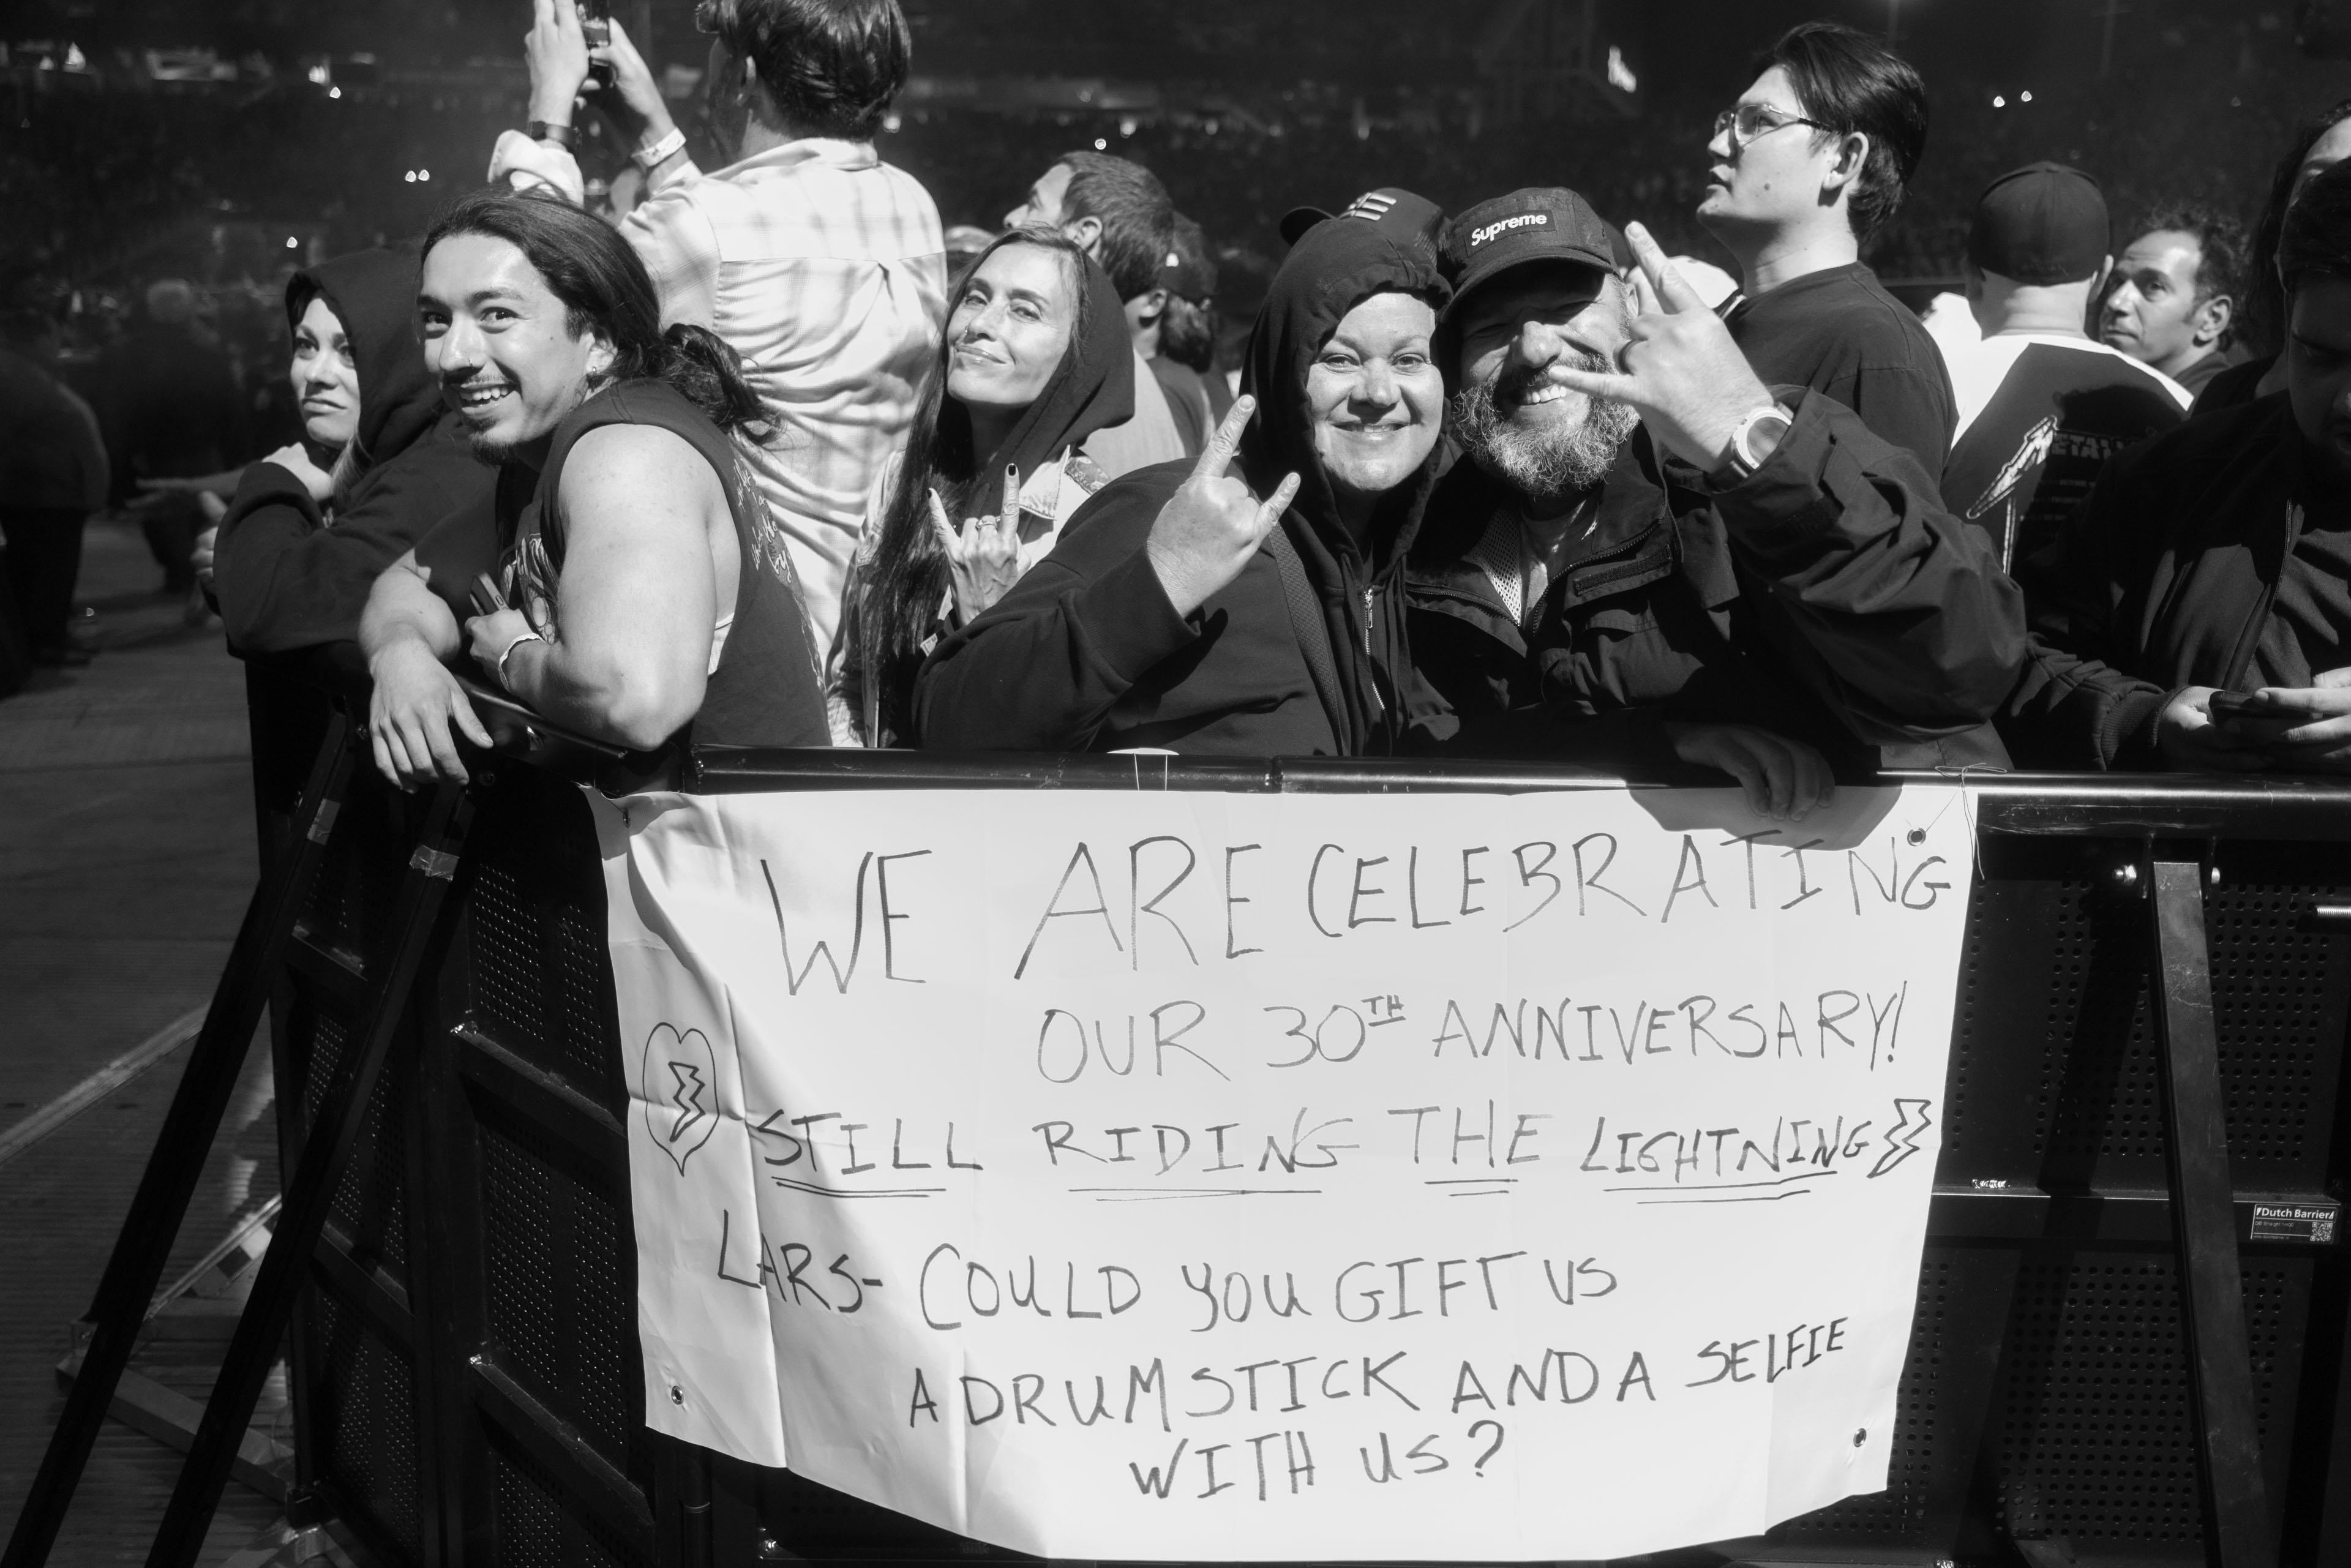 Supreme
METALLI
WE ARE CELEBRATING
OUR 30TH ANNIVERSARY!
STILL RIDING THE LIGHTNING
LARS- COULD YOU GIFT US
A DRUMSTICK AND A SELFIE
WITH US?
Dutch Barrier